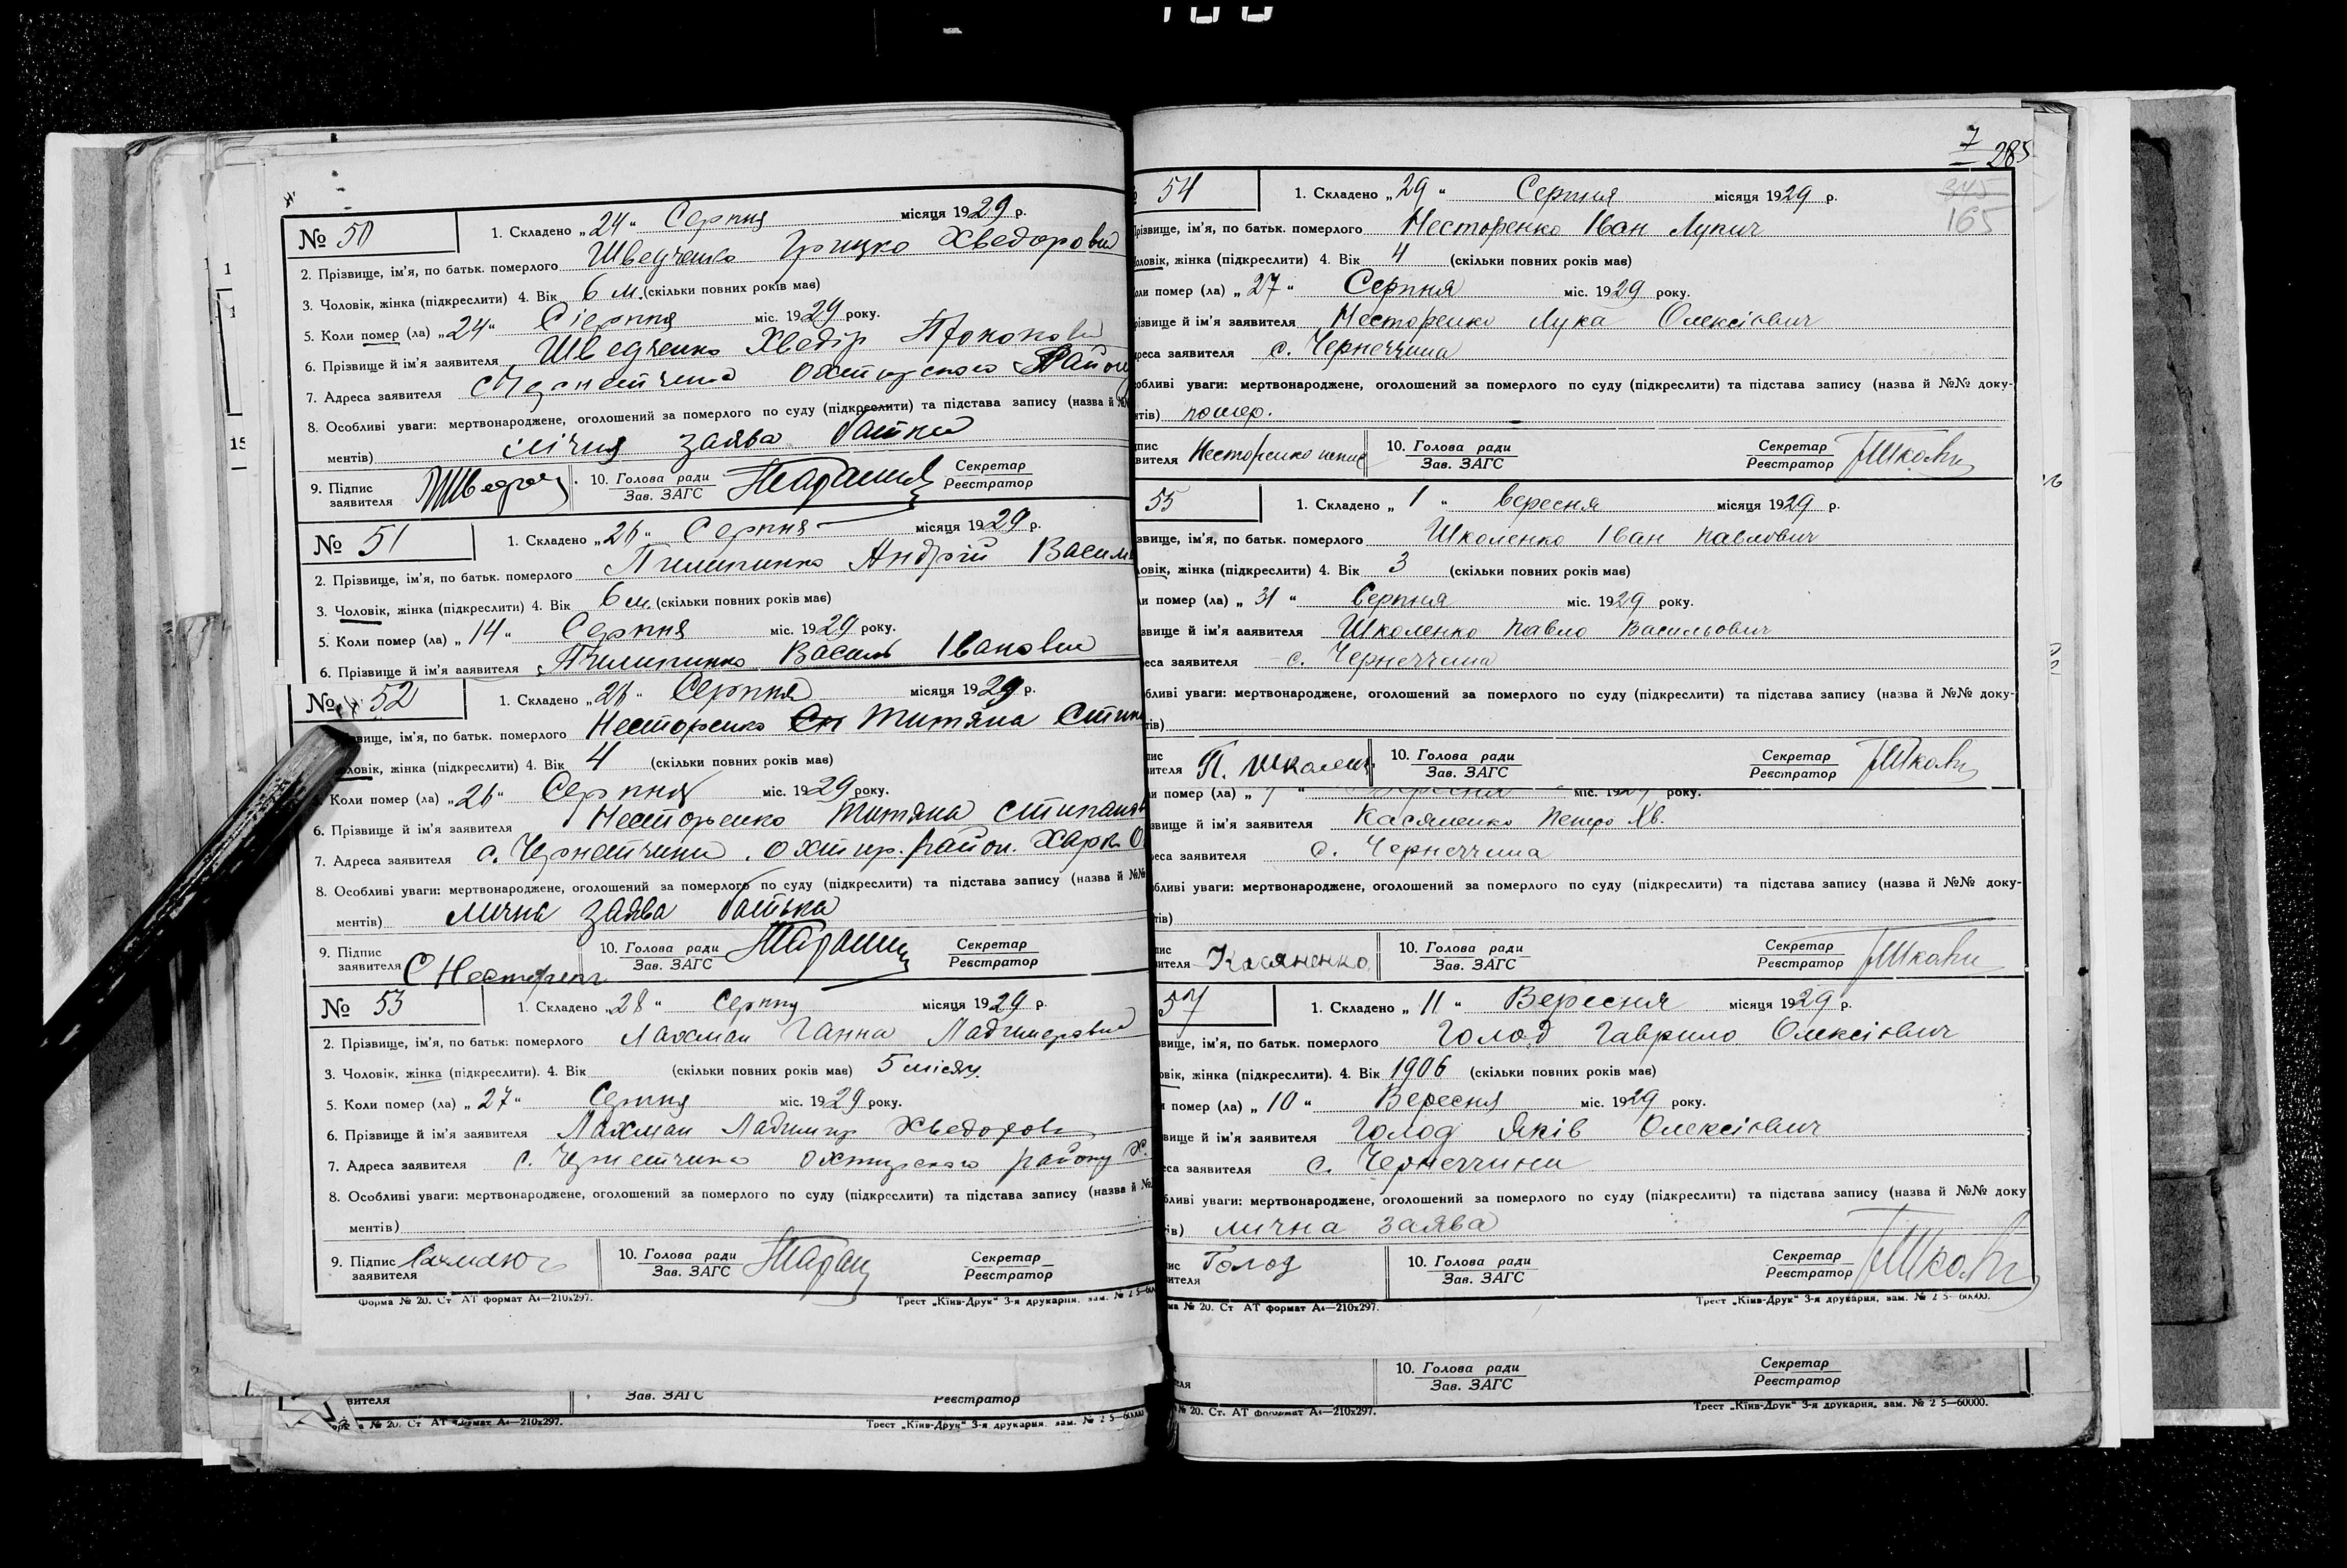 № 50
1. Складено „24“ Серпня місяця 1929 р.
2. Прізвище, ім'я, по батьк. померлого Шведченко Грицко Хведорович
3. Чоловік, жінка (підкреслити) 4. Вік 6 м. (скільки повних років має)
5. Коли помер (ла) „24“ Сіерпня міс. 1929 року.
6. Прізвище й ім'я заявителя Шведченко Хведір
7. Адреса заявителя Район
8. Особливі уваги: мертвонароджене, оголошений за померлого по суду (підкреслити) та підстава запису (назва й №№
ментів) заява батки
9. Підпис заявителя 10. Голова ради Зав. ЗАГС Секретар Реєстратор
№ 51
1. Складено „26“ Серпня місяця 1929 р.
2. Прізвище, ім'я, по батьк. померлого Андрій Васил
3. Чоловік, жінка (підкреслити) 4. Вік 6 м. (скільки повних років має)
5. Коли помер (ла) „14“ Серпня міс. 1929 року.
6. Прізвище й ім'я заявителя Василь Іванови
№ 52
1. Складено „26“ Серпня місяця 1929 р.
вище, ім'я, по батьк. померлого Несторенко Титяна Стип
ловік, жінка (підкреслити) 4. Вік 4 (скільки повних років має)
Коли помер (ла) „26“ Серпня міс. 1929 року.
6. Прізвище й ім'я заявителя Несторенко Титяна Стипанов
7. Адреса заявителя с. Чернетчини. Охтир. район. Харк. О
8. Особливі уваги: мертвонароджене, оголошений за померлого по суду (підкреслити) та підстава запису (назва й №№
ментів) лична заява батька
9. Підпис заявителя С Несторен 10. Голова ради Зав. ЗАГС Секретар Реєстратор
№ 53
1. Складено „28“ Серпня місяця 1929 р.
2. Прізвище, ім'я, по батьк. померлого Лахман Ганна Ладимеровна
3. Чоловік, жінка (підкреслити). 4. Вік (скільки повних років має) 5 місяц.
5. Коли помер (ла) „27“ Серпня міс. 1929 року.
6. Прізвище й ім'я заявителя Лахман Ладимир Хведоров
7. Адреса заявителя с. Чернетчина Охтирского району Х.
8. Особливі уваги: мертвонароджене, оголошений за померлого по суду (підкреслити) та підстава запису (назва й №
ментів)
9. Підпис заявителя 10. Голова ради Зав. ЗАГС Секретар Реєстратор
Форма № 20. Ст АТ формат А4—210х297. Трест „Київ-Друк“ 3-я друкарня, зам. № 2 5—60
вителя Зав. ЗАГС Реєстратор
№ 20. Ст. АТ формат А4—210х297. Трест „Київ-Друк“ 3-я друкарня, зам. № 2 5—60000
7
285
345
165
54
1. Складено „29“ Серпня місяця 1929 р.
різвище, ім'я, по батьк. померлого Несторенко Іван Лукич
оловік, жінка (підкреслити) 4. Вік 4 (скільки повних років має)
оли помер (ла) „27“ Серпня міс. 1929 року.
різвище й ім'я заявителя Несторенко Лука Олексієвич
дреса заявителя с. Чернеччина
обливі уваги: мертвонароджене, оголошений за померлого по суду (підкреслити) та підстава запису (назва й №№ доку-
нтів) помер.
пис вителя Несторенко 10. Голова ради Зав. ЗАГС Секретар Реєстратор
55
1. Складено „1“ вересня місяця 1929 р.
звище, ім'я, по батьк. померлого Школенко Іван Павлович
ловік, жінка (підкреслити) 4. Вік 3 (скільки повних років має)
ли помер (ла) „31“ Серпня міс. 1929 року.
звище й ім'я заявителя Школенко Павло Васильович
еса заявителя с. Чернеччина
бливі уваги: мертвонароджене, оголошений за померлого по суду (підкреслити) та підстава запису (назва й №№ доку-
тів)
пис вителя П. Школенк 10. Голова ради Зав. ЗАГС Секретар Реєстратор
и помер (ла) „7“ Вересня міс. 1929 року.
звище й ім'я заявителя Касяненко Петро Хв.
еса заявителя с. Чернеччина
бливі уваги: мертвонароджене, оголошений за померлого по суду (підкреслити) та підстава запису (назва й №№ доку-
тів)
пис вителя Касяненко 10. Голова ради Зав. ЗАГС Секретар Реєстратор
57
1. Складено „11“ Вересня місяця 1929 р.
вище, ім'я, по батьк. померлого Голод Гаврило Олексієвич
овік, жінка (підкреслити). 4. Вік 1906 (скільки повних років має)
помер (ла) „10“ Вересня міс. 1929 року.
вище й ім'я заявителя Голод Яків Олексієвич
еса заявителя с. Чернеччини
бливі уваги: мертвонароджене, оголошений за померлого по суду (підкреслити) та підстава запису (назва й №№ доку
ів) лична заява
ис ителя Голод 10. Голова ради Зав. ЗАГС Секретар Реєстратор
ма № 20. Ст АТ формат А4—210х297. Трест „Київ-Друк“ 3-я друкарня, зам. № 2 5—60000.
10. Голова ради Зав. ЗАГС Секретар Реєстратор
№ 20. Ст. АТ формат А4—210х297. Трест „Київ-Друк“ 3-я друкарня, зам. № 2 5—60000.